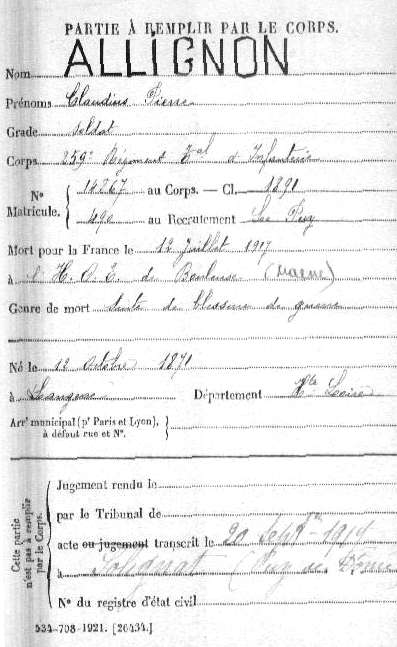 PARTIE À REMPLIR PAR LE CORPS.
Nom ALLIGNON
Prénoms Claudius Pierre
Grade soldat
Corps 259e Régiment Tal d'Infanterie
N° Matricule. 14267 au Corps. — Cl. 1891
490 au Recrutement Le Puy
Mort pour la France le 12 Juillet 1917
à l'H. O. E. de Bouleuse (Marne)
Genre de mort Suite de blessure de guerre
Né le 12 octobre 1871
à Département Hte Loire
Arrt municipal (pr Paris et Lyon),
à défaut rue et N°.
Cette partie
n'est pas à remplir
par le Corps.
Jugement rendu le
par le Tribunal de
acte ou jugement transcrit le 20 Septbre 1917
à (Puy de Dôme
N° du registre d'état civil
534-708-1921. [26434.]